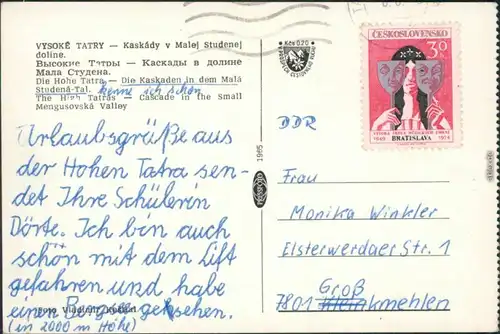 VYSOKÉ TATRY — Kaskády v Malej Studenej
doline.
Высокие Татры — Каскады в долине
Мала Студена.
Die Hohe Tatra — Die Kaskaden in dem Malá
Studená-Tal. kenne ich schon
The High Tatras — Cascade in the Small
Mengusovská Valley
Urlaubsgrüße aus
der Hohen Tatra sen-
det Ihre Schülerin
Dörte. Ich bin auch
schön mit dem Lift
gefahren und habe
einen gesehen.
(in 2000 m Höhe)
1965
Kčs 0,20
ČESKOSLOVENSKO
30
1949 BRATISLAVA 1974
DDR
Frau
Monika Winkler
Elsterwerdaer Str. 1
Groß
7801 Kleinkmehlen